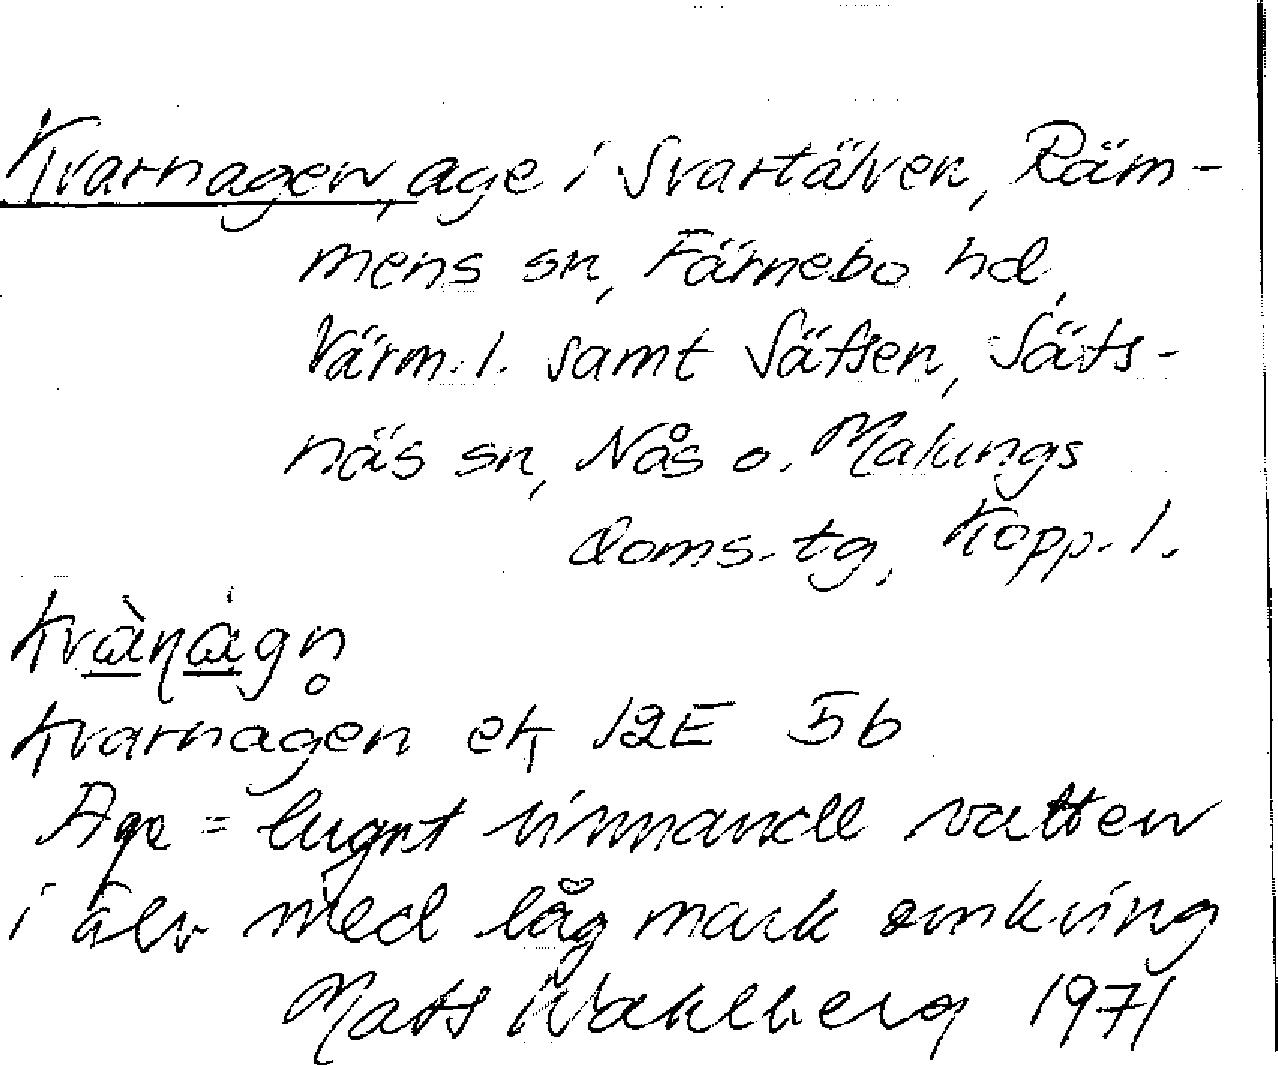 Kvarnagen, age i Svartälven, Räm-
mens sn, Färnebo hd,
Värml. l. samt Säfsen, Säfs-
näs sn, Nås o. Malungs
doms. tg, Kopp. l.
Kvarnagen ek 12E 5b
Age = lugnt rinnande vatten
i älv med låg mark omkring
Mats Wahlberg 1971